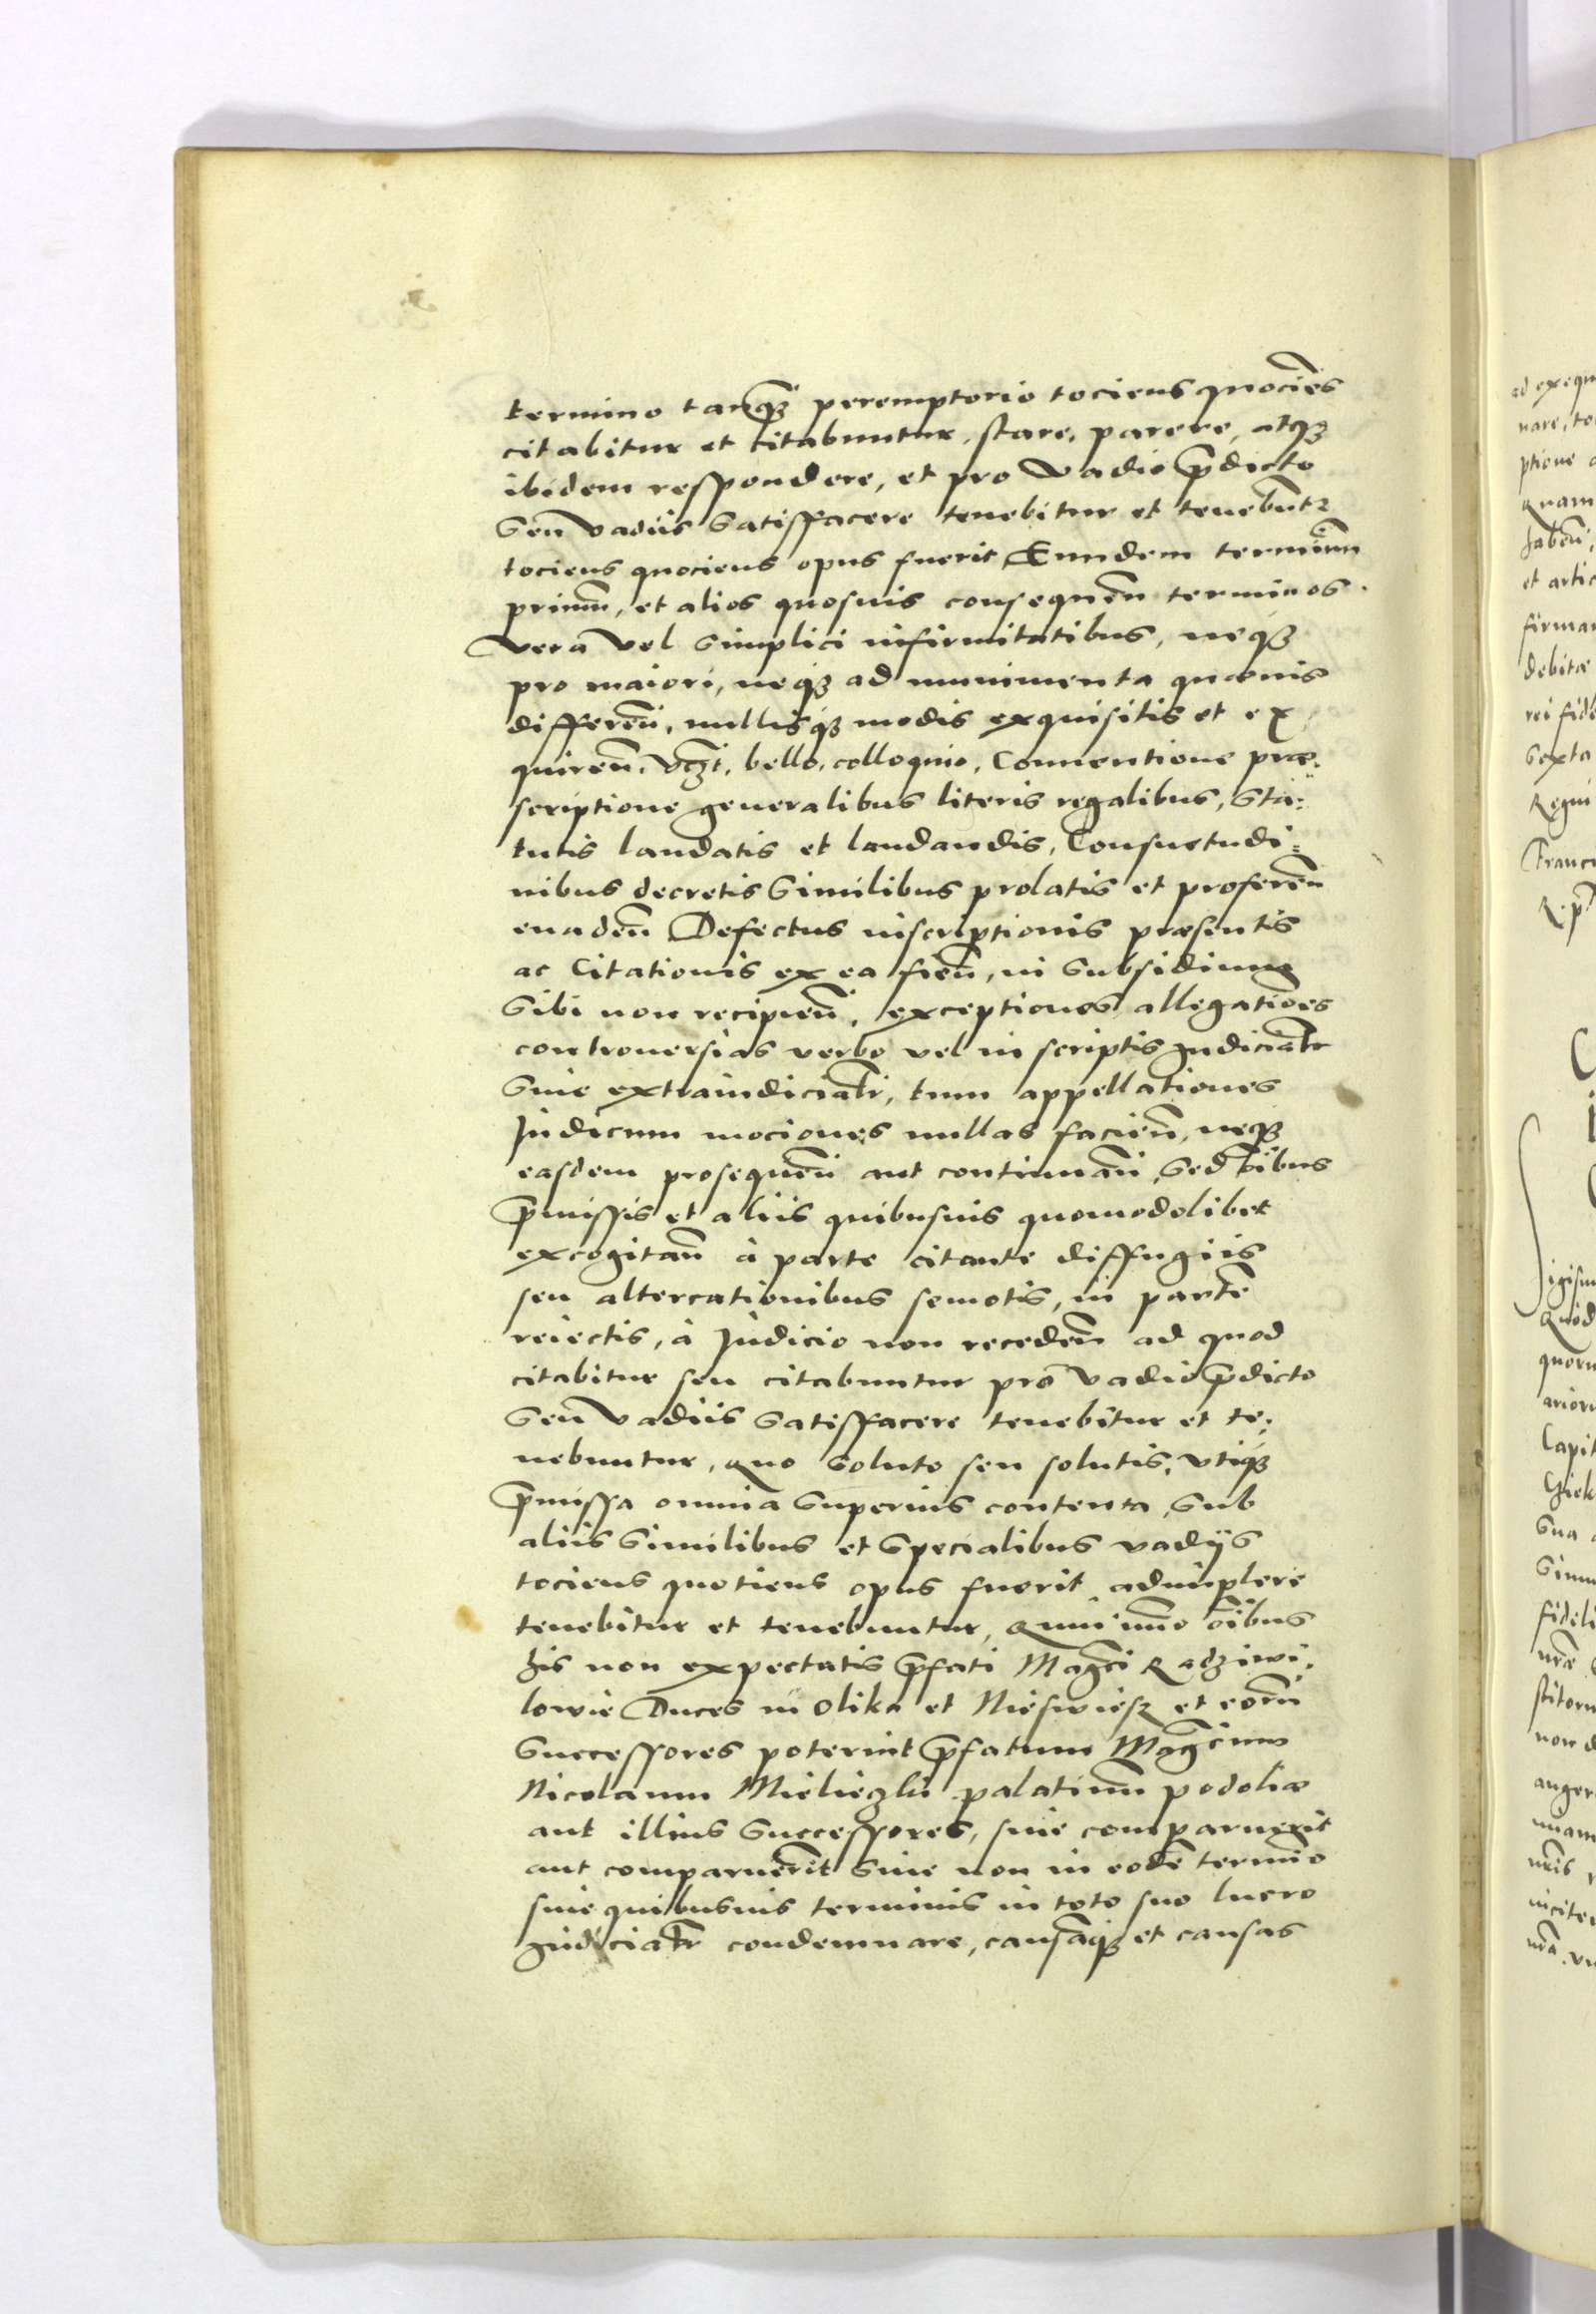 termino tanq̃ꝫ peremptorio tociens quociẽs
citabitur et citabuntur, stare, parere, atqꝫ
ibidem respondere, et pro vadio p̃dicto
seu vadiis satisfacere tenebitur et tenebũtꝛ
tociens quociens opus fuerit Eundem termĩum
primũ, et alios quosuis consequẽn terminos.
vera vel simplici infirmitatibus, neqꝫ
pro maiori, neqꝫ ad munimenta quæuis
differeñ, nullisqꝫ modis exquisitis et ex
quireñ, vꝫt, bello, colloquio, Conuentione præ:
scriptione generalibus literis regalibus, sta:
tutis laudatis et laudandis, Consuetudi:
nibus decretis similibus prolatis et profereñ
euadeñ Defectus inscriptionis præsentis
ac Citationis ex ea fieñ, in subsidium
sibi non recipieñ, exceptiones allegatiões
controuersias verbo vel in scriptis judiciatr̃
siue extraiudiciatr̃, tum appellationes
Judicum mociones nullas facieñ, neqꝫ
easdem prosequeñ aut continuañ, sed oĩbus
p̃missis et aliis quibusuis quomodolibet
excogitañ à parte citante diffugiis
seu altercationibus semotis, in partẽ
reiectis, à Judicio non recedeñ ad quod
citabitur seu citabuntur pro vadio p̃dicto
seu vadiis satisfacere tenebitur et te:
nebuntur, quo soluto seu solutis, vtiqꝫ
p̃missa omnia superius contenta, sub
aliis similibus et specialibus vadijs
tociens quotiens opus fuerit adimplere
tenebitur et tenebuntur, quinimo oĩbus
his non expectatis p̃fati Mag̃ci Radziwi:
lowie Duces in Olika et Nieswiesz et eorũ
successores poterint p̃fatum Mag̃cum
Nicolaum Mielieczki palatinũ podoliæ
aut illius successores, siue comparuerit
aut comparuerĩt siue non in eodẽ termio
siue quibusuis terminis in toto suo lucro
judiciatr̃ condemnare, causãqꝫ et causas